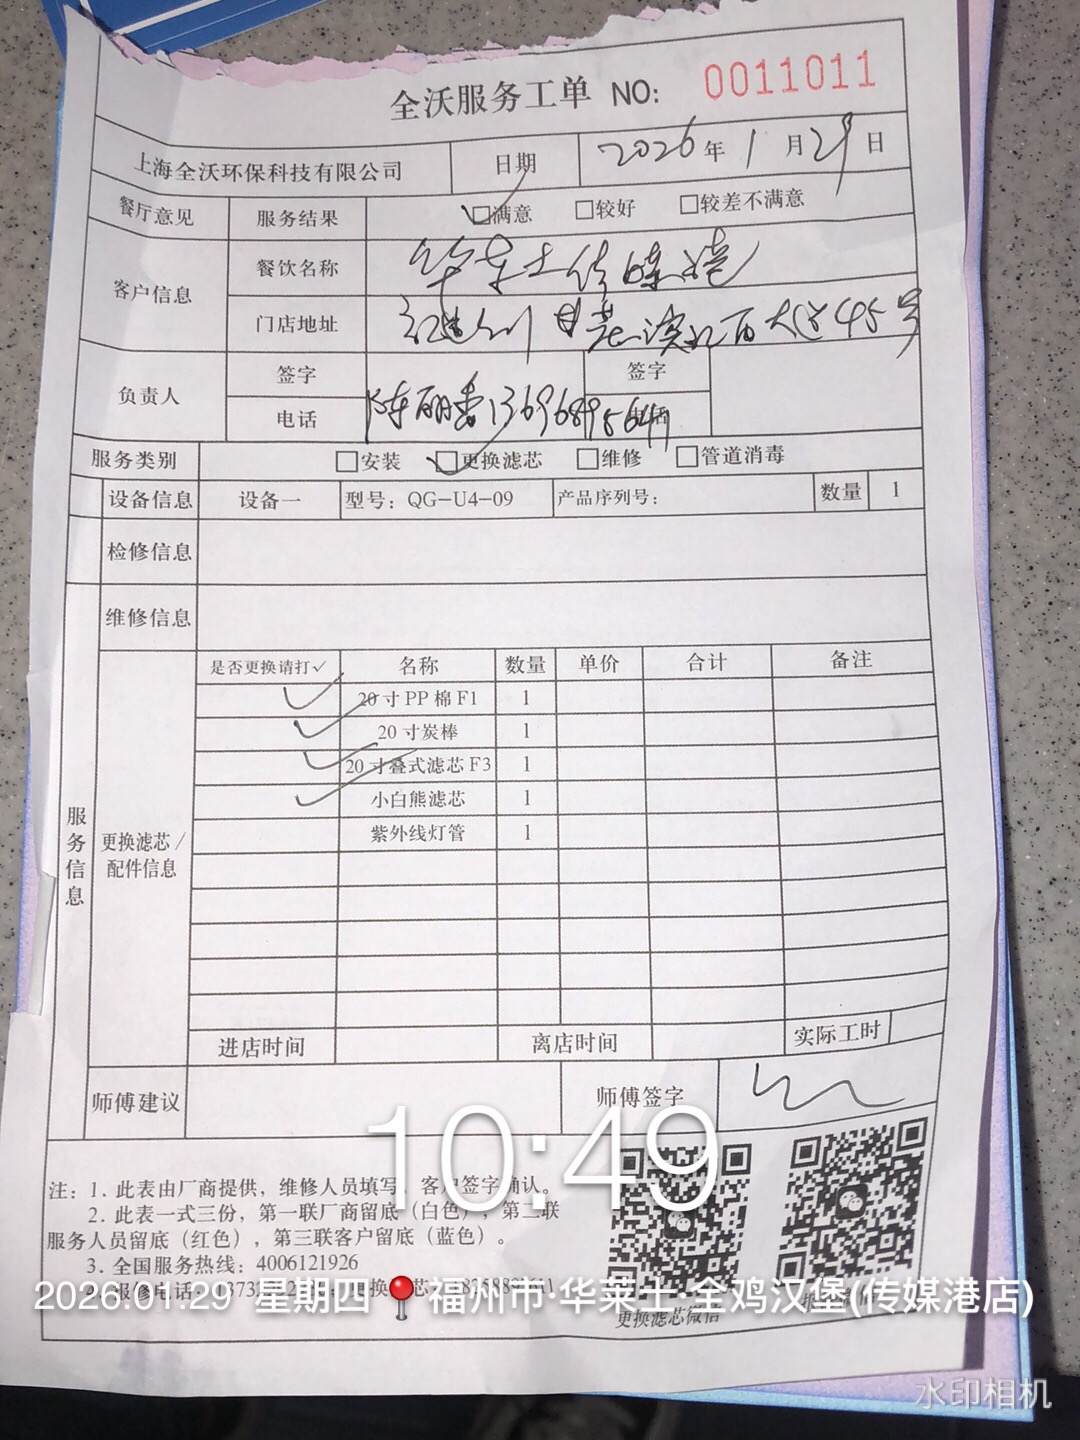 全沃服务工单 NO: 0011011
上海全沃环保科技有限公司 日期 2026年1月29日
餐厅意见 服务结果 □满意 □较好 □较差不满意
客户信息 餐饮名称 华莱士传媒港
门店地址 福州 大道45号
负责人 签字 签字
电话 陈丽香 13696895641
服务类别 □安装 □更换滤芯 □维修 □管道消毒
设备信息 设备一 型号：QG-U4-09 产品序列号： 数量 1
检修信息
维修信息
是否更换请打✓ 名称 数量 单价 合计 备注
✓ 20寸PP棉F1 1
✓ 20寸炭棒 1
✓ 20寸叠式滤芯F3 1
✓ 小白熊滤芯 1
紫外线灯管 1
服务信息
更换滤芯/
配件信息
进店时间 离店时间 实际工时
师傅建议 师傅签字
10:49
注：1.此表由厂商提供，维修人员填写，客户签字确认。
2.此表一式三份，第一联厂商留底（白色），第二联
服务人员留底（红色），第三联客户留底（蓝色）。
3.全国服务热线：4006121926
2026.01.29 星期四 福州市·华莱士·全鸡汉堡(传媒港店)
更换滤芯微信
水印相机